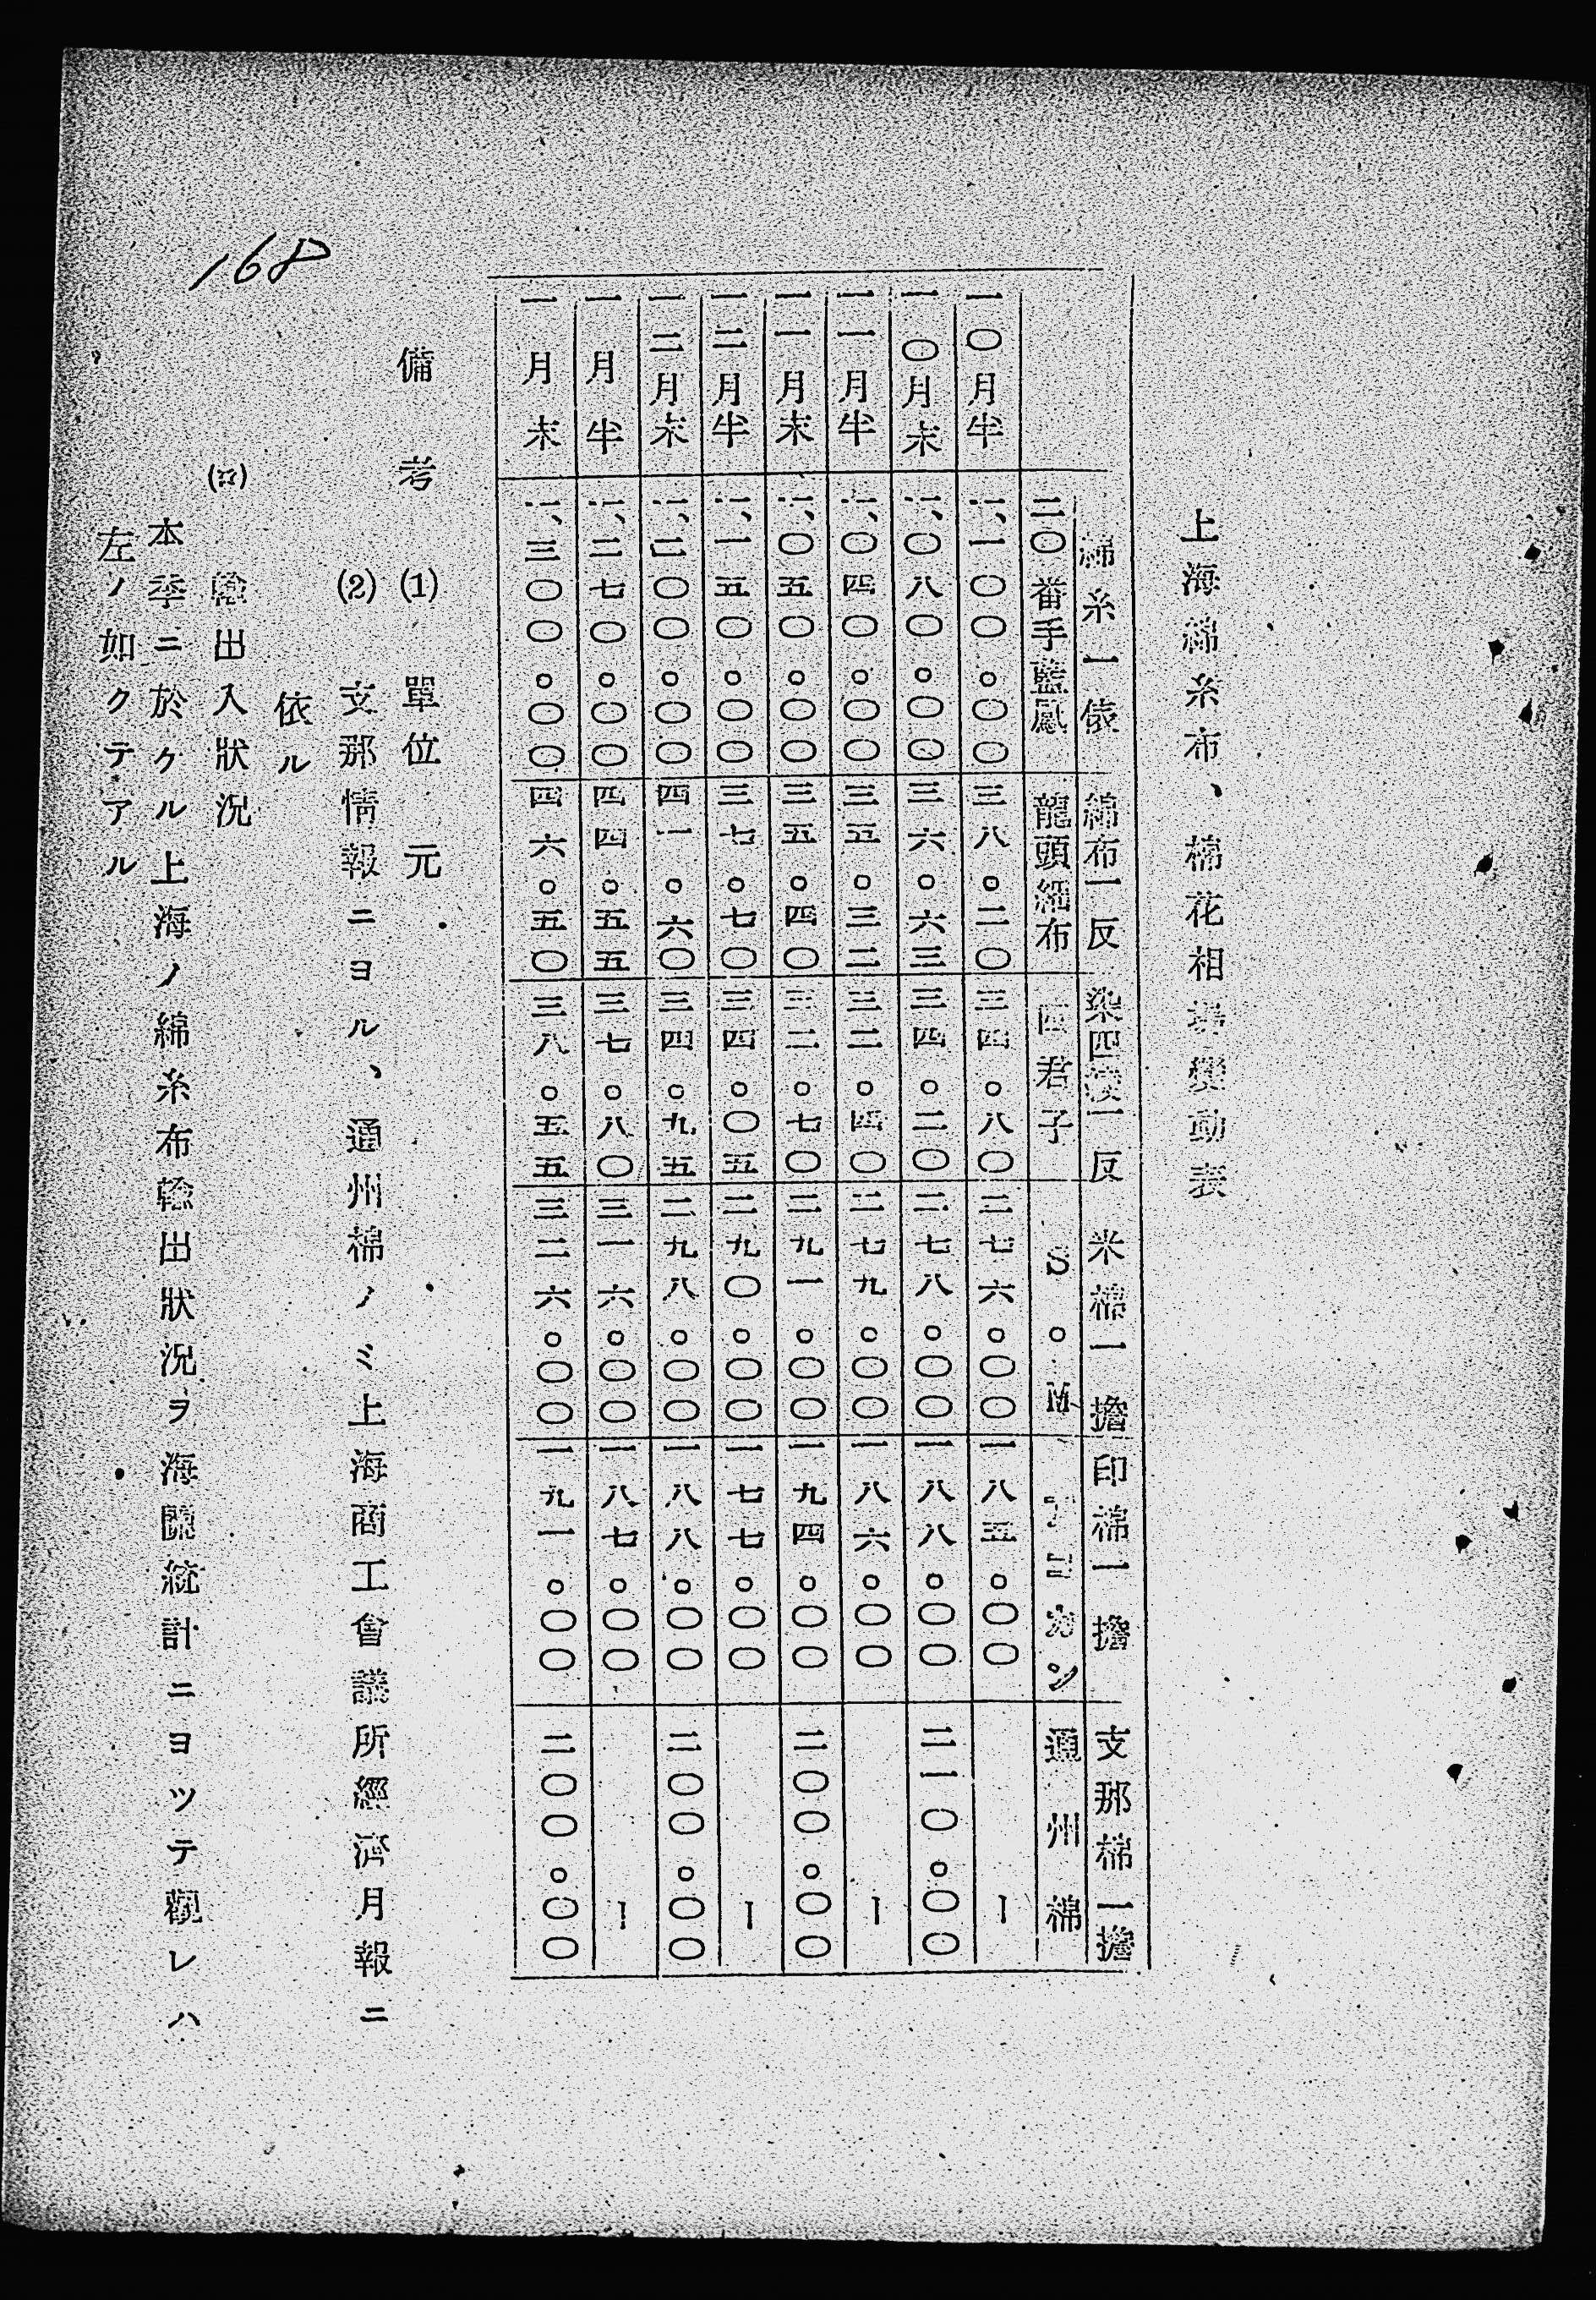 上海綿糸布、棉花相場變動表
綿糸一俵 綿布一反 染四綾一反 米棉一擔 印棉一擔 支那棉一擔
二〇番手藍鳳 龍頭細布 四君子 S。M 通州棉
一〇月半 一、一〇〇。〇〇 三八。二〇 三四。八〇 二七六。〇〇 一八五。〇〇 ー
一〇月末 一、〇八〇。〇〇 三六。六三 三四。二〇 二七八。〇〇 一八八。〇〇 二一〇。〇〇
一一月半 一、〇四〇。〇〇 三五。三二 三二。四〇 二七九。〇〇 一八六。〇〇 ー
一一月末 一、〇五〇。〇〇 三五。四〇 三二。七〇 二九一。〇〇 一九四。〇〇 二〇〇。〇〇
一二月半 一、一五〇。〇〇 三七。七〇 三四。〇五 二九〇。〇〇 一七七。〇〇 ー
一二月末 一、二〇〇。〇〇 四一。六〇 三四。九五 二九八。〇〇 一八八。〇〇 二〇〇。〇〇
一月半 一、二七〇。〇〇 四四。五五 三七。八〇 三一六。〇〇 一八七。〇〇 ー
一月末 一、三〇〇。〇〇 四六。五〇 三八。五五 三二六。〇〇 一九一。〇〇 二〇〇。〇〇
備考 (1) 單位 元
(2) 支那情報ニヨル、通州棉ノミ上海商工會議所經濟月報ニ
依ル
(ロ) 輸出入狀況
本季ニ於ケル上海ノ綿糸布輸出狀況ヲ海關統計ニヨツテ觀レハ
左ノ如クテアル
168